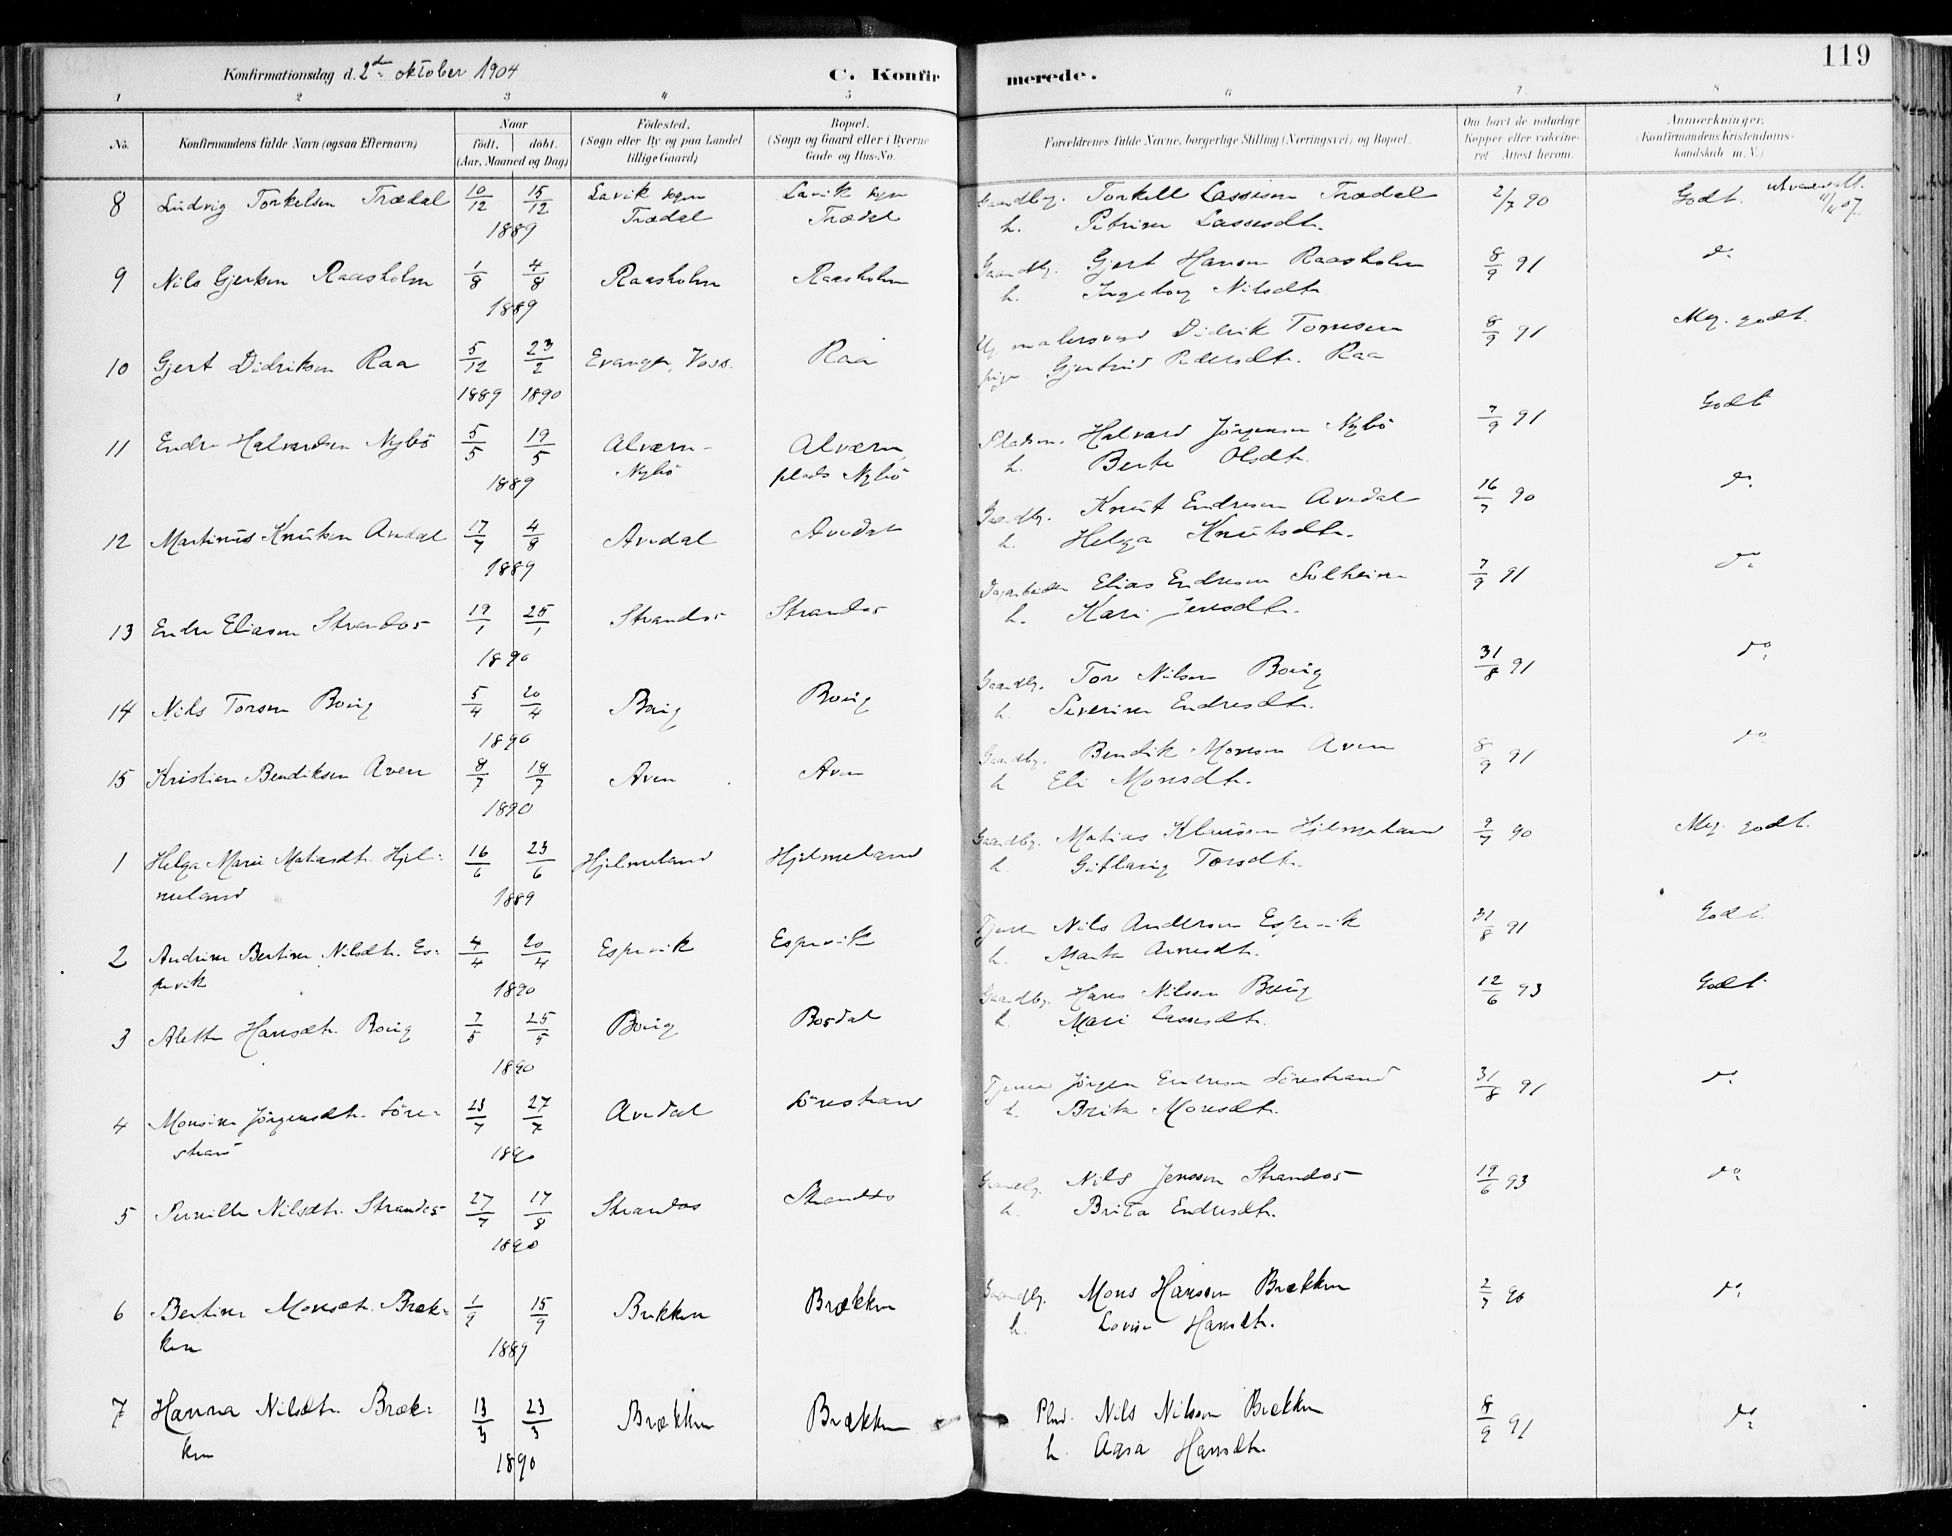 119
Konfirmationsdag d. 2den oktober 1904
C. Konfirmerede.
1 2 3 4 5 6 7 8
No. Konfirmandens fulde Navn (ogsaa Efternavn) Naar født. døbt. (Aar, Maaned og Dag) Fødested. (Sogn eller By og paa Landet tillige Gaard) Bopæl. (Sogn og Gaard eller i Byerne Gade og Hus-No. Forældrenes fulde Navne, borgerlige Stilling (Næringsvei) og Bopæl. Om havt de naturlige Kopper eller vakcineret. Attest herom. Anmærkninger. (Konfirmandens Kristendomskundskab m. V.)
8 Ludvig Torkelsen Trædal 10/12 15/12 Lavik sogn Lavik sogn Gaardbr. Torkell Lassesen Trædal 2/7 90 Godt.
1889 Trædal Trædal h. Petrine Lassesdtr.
9 Nils Gjertsen Raasholm 1/8 4/8 Raasholm Raasholm Gaardbr. Gjert Hansen Raasholm 8/9 91 do
1889 h. Ingeborg Nilsdtr.
10 Gjert Didriksen Raa 5/12 23/2 Evanger, Voss. Raa Ug. malersvend Didrik Tomesen 8/9 91 Meg. godt.
1889 1890 pige Gjertrud Pedersdtr. Raa
11 Endre Halvardsen Nybö 5/5 19/5 Alværn- Alværn, Pladsm. Halvard Jörgensen Nybö 7/9 91 Godt
1889 Nybö plads Nybö h. Berte Olsdtr.
12 Martinus Knutsen Avedal 17/7 4/8 Avedal Avedal Gaardbr. Knut Endresen Avedal 16/7 90 do
1889 h. Helga Knutsdtr.
13 Endre Eliasen Strandos 19/1 25/1 Strandos Strandos Dagarbeider Elias Endresen Solheim 7/9 91 do
1890 h. Kari Jensdtr.
14 Nils Torsen Boug 5/4 20/4 Boug Boug Gaardbr. Tore Nilsen Boug 31/8 91 do
1890 h. Severine Endresdtr.
15 Kristian Bendiksen Aven 8/7 18/7 Aven Aven Gaardbr. Bendik Monsen Aven 8/9 91 do
1890 h Eli Monsdtr.
1 Helga Marie Matiasdtr. Hjel- 16/6 23/6 Hjelmeland Hjelmeland Gaardbr. Matias Hjelmeland 9/7 90 Meg. godt.
meland 1889 h. Torsdtr.
2 Andrine Bertine Nilsdtr. Es- 4/4 20/4 Espevik Espevik Tjener Nils Andersen Espevik 31/8 91 Godt.
pevik 1890 h. Marta Arnesdtr.
3 Alette Hansdtr. Boug 7/5 25/5 Boug Bosdal Gaardbr. Hans Nilsen Boug 12/6 93 Godt
1890 h. Mari Lassesdtr.
4 Monsine Jörgensdtr. Söre- 23/7 27/7 Avedal Sörestrand Tjener Jörgen Endresen Sörestrand 31/8 91 do
strand 1890 h. Brita Monsdtr.
5 Pernille Nilsdtr. Strandos 27/7 17/8 Strandos Strandos Gaardbr. Nils Jensen Strandos 19/6 93 do
1890 h. Brita Endresdtr.
6 Bertine Monsdtr. Bræk- 1/9 15/9 Brekken Brækken Gaardbr. Mons Hansen Brækken 2/7 90 do
ken 1889 h. Lovise Hansdtr.
7 Hanna Nilsdtr. Bræk- 13/3 23/3 Brækken Brækken Plad. Nils Nilsen Brekken 8/9 91 do
ken 1890 h. Agsa Hansdtr.